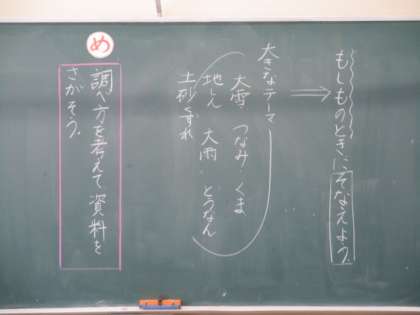 もしものときにそなえよう
大きなテーマ
大雪 つなみ くま
地しん 大雨 とうなん
土砂くずれ
め
調べ方を考えて資料を
さがそう。